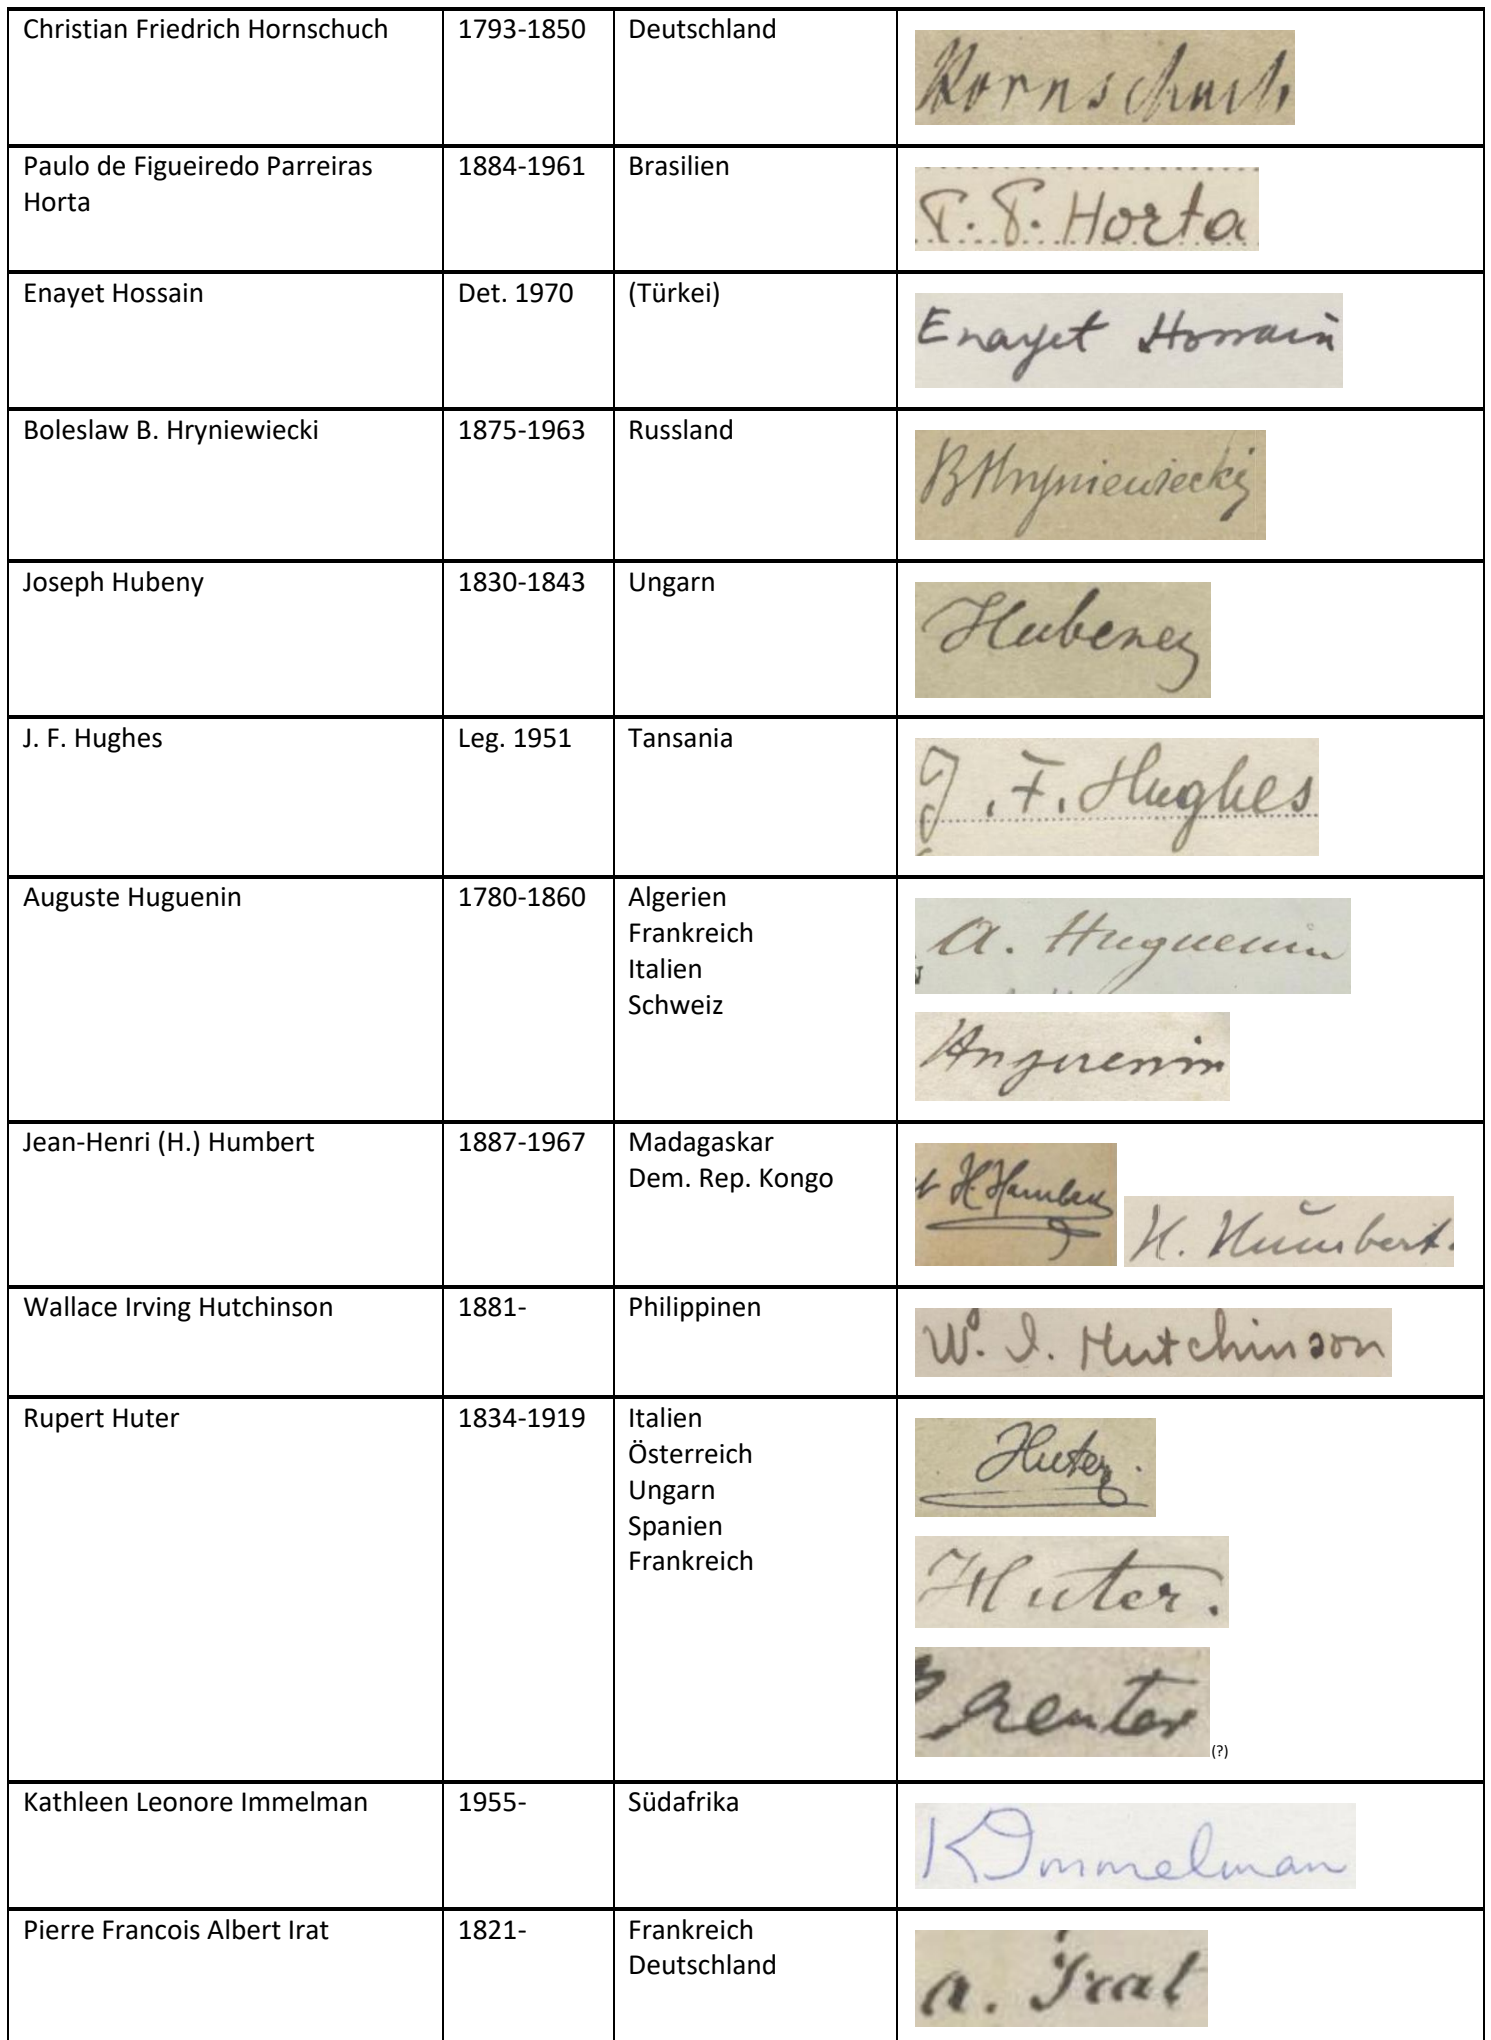 Christian Friedrich Hornschuch 1793-1850 Deutschland Hornschuch
Paulo de Figueiredo Parreiras 1884-1961 Brasilien P. P. Horta
Horta
Enayet Hossain Det. 1970 (Türkei) Enayet Hossain
Boleslaw B. Hryniewiecki 1875-1963 Russland BHryniewiecki
Joseph Hubeny 1830-1843 Ungarn Hubeny
J. F. Hughes Leg. 1951 Tansania J. F. Hughes
Auguste Huguenin 1780-1860 Algerien A. Huguenin
Frankreich
Italien
Schweiz
Huguenin
Jean-Henri (H.) Humbert 1887-1967 Madagaskar H. Humbert H. Humbert.
Dem. Rep. Kongo
Wallace Irving Hutchinson 1881- Philippinen W. I. Hutchinson
Rupert Huter 1834-1919 Italien Huter.
Österreich
Ungarn
Spanien
Frankreich
Huter.
(?)
Kathleen Leonore Immelman 1955- Südafrika K Immelman
Pierre Francois Albert Irat 1821- Frankreich a. Irat
Deutschland